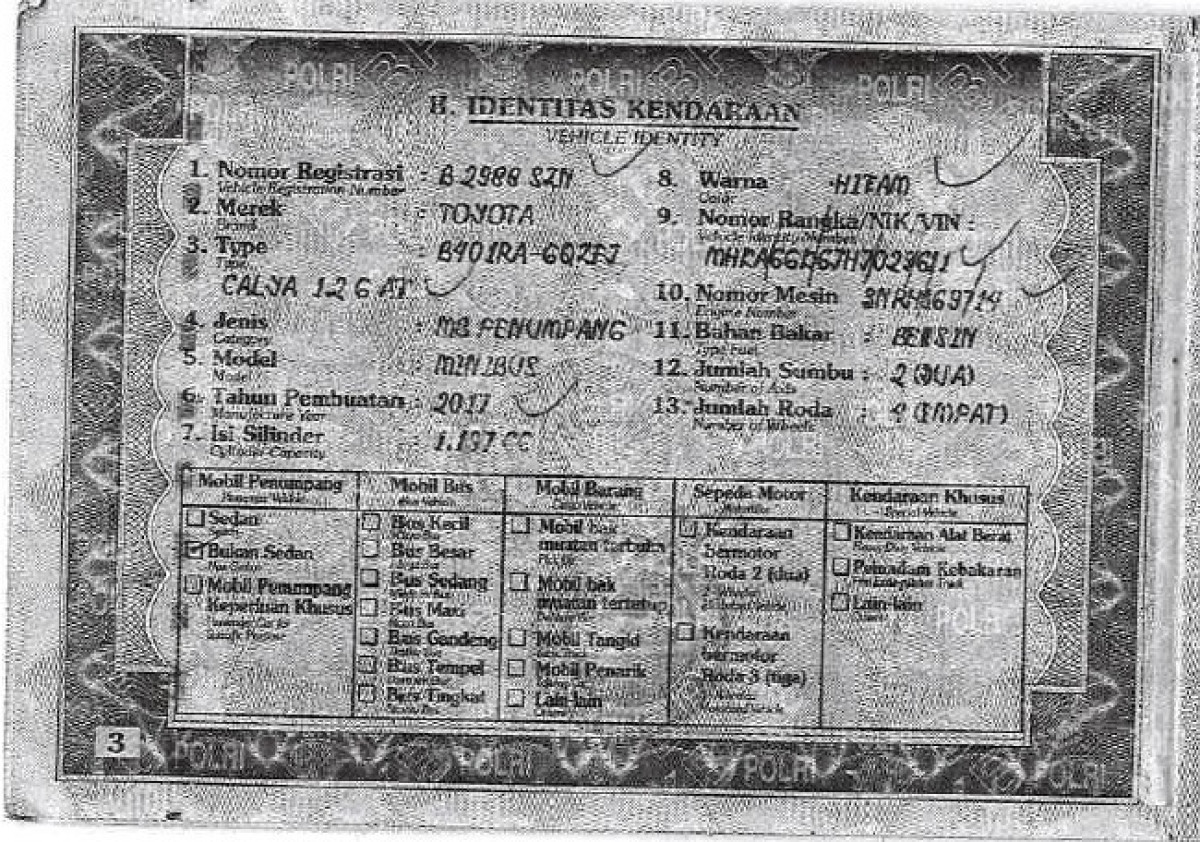 POLRI POLRI POLRI
II. IDENTITAS KENDARAAN
VEHICLE IDENTITY
1. Nomor Registrasi : B 2988 SZN
Vehicle Registration Number
2. Merek : TOYOTA
Brand
3. Type : B401RA-GQZFJ
Type
CALYA 1.2 G AT
4. Jenis : MB PENUMPANG
Category
5. Model : MINIBUS
Model
6. Tahun Pembuatan : 2017
Manufacture Year
7. Isi Silinder : 1.197 CC
Cylinder Capacity
8. Warna : HITAM
Color
9. Nomor Rangka/NIK/VIN :
Vehicle Identity Number
10. Nomor Mesin
Engine Number
11. Bahan Bakar : BENSIN
Type Fuel
12. Jumlah Sumbu : 2 (DUA)
Number of Axis
13. Jumlah Roda : 4 (EMPAT)
Number of Wheels
Mobil Penumpang
Passenger Vehicle
Sedan
Sedan
Bukan Sedan
Non Sedan
Mobil Penumpang
Keperluan Khusus
Passenger Car for
Specific Purpose
Mobil Bus
Bus Vehicle
Bus Kecil
Bus Besar
Bus Sedang
Bus Maxi
Maxi Bus
Bus Gandeng
Bus Tempel
Bus Tingkat
Mobil Barang
Cargo Vehicle
Mobil bak
muatan terbuka
Pick Up
Mobil bak
muatan tertutup
Mobil Tangki
Mobil Penarik
Lain-lain
Others
Sepeda Motor
Motorbike
Kendaraan
bermotor
Roda 2 (dua)
2 Wheeler
Kendaraan
bermotor
Roda 3 (tiga)
Kendaraan Khusus
Special Vehicle
Kendaraan Alat Berat
Heavy Duty Vehicle
Pemadam Kebakaran
Lain-lain
Others
POLRI
3
POLRI POLRI POLRI POLRI